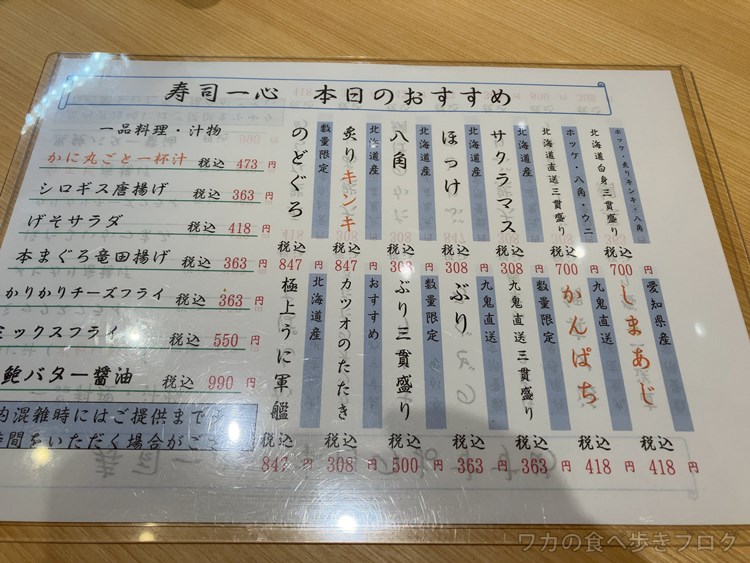 寿司一心　本日のおすすめ
一品料理・汁物
かに丸ごと一杯汁 税込 473 円
シロギス唐揚げ 税込 363 円
げそサラダ 税込 418 円
本まぐろ竜田揚げ 税込 363 円
かりかりチーズフライ 税込 363 円
ミックスフライ 税込 550 円
鮑バター醤油 税込 990 円
内混雑時にはご提供まで
時間をいただく場合がご
ホッケ・炙りキンキ・八角
北海道白身三貫盛り
税込
700 円
ホッケ・八角・ウニ
北海道直送三貫盛り
税込
700 円
北海道産
サクラマス
税込
308 円
北海道産
ほっけ
税込
308 円
北海道産
八角
税込
363 円
北海道産
炙りキンキ
税込
847 円
数量限定
のどぐろ
税込
847 円
愛知県産
しまあじ
税込
418 円
九鬼直送
かんぱち
税込
418 円
数量限定
九鬼直送三貫盛り
税込
363 円
九鬼直送
ぶり
税込
363 円
数量限定
ぶり三貫盛り
税込
500 円
おすすめ
カツオのたたき
税込
308 円
北海道産
極上うに軍艦
税込
847 円
ワカの食べ歩きブログ